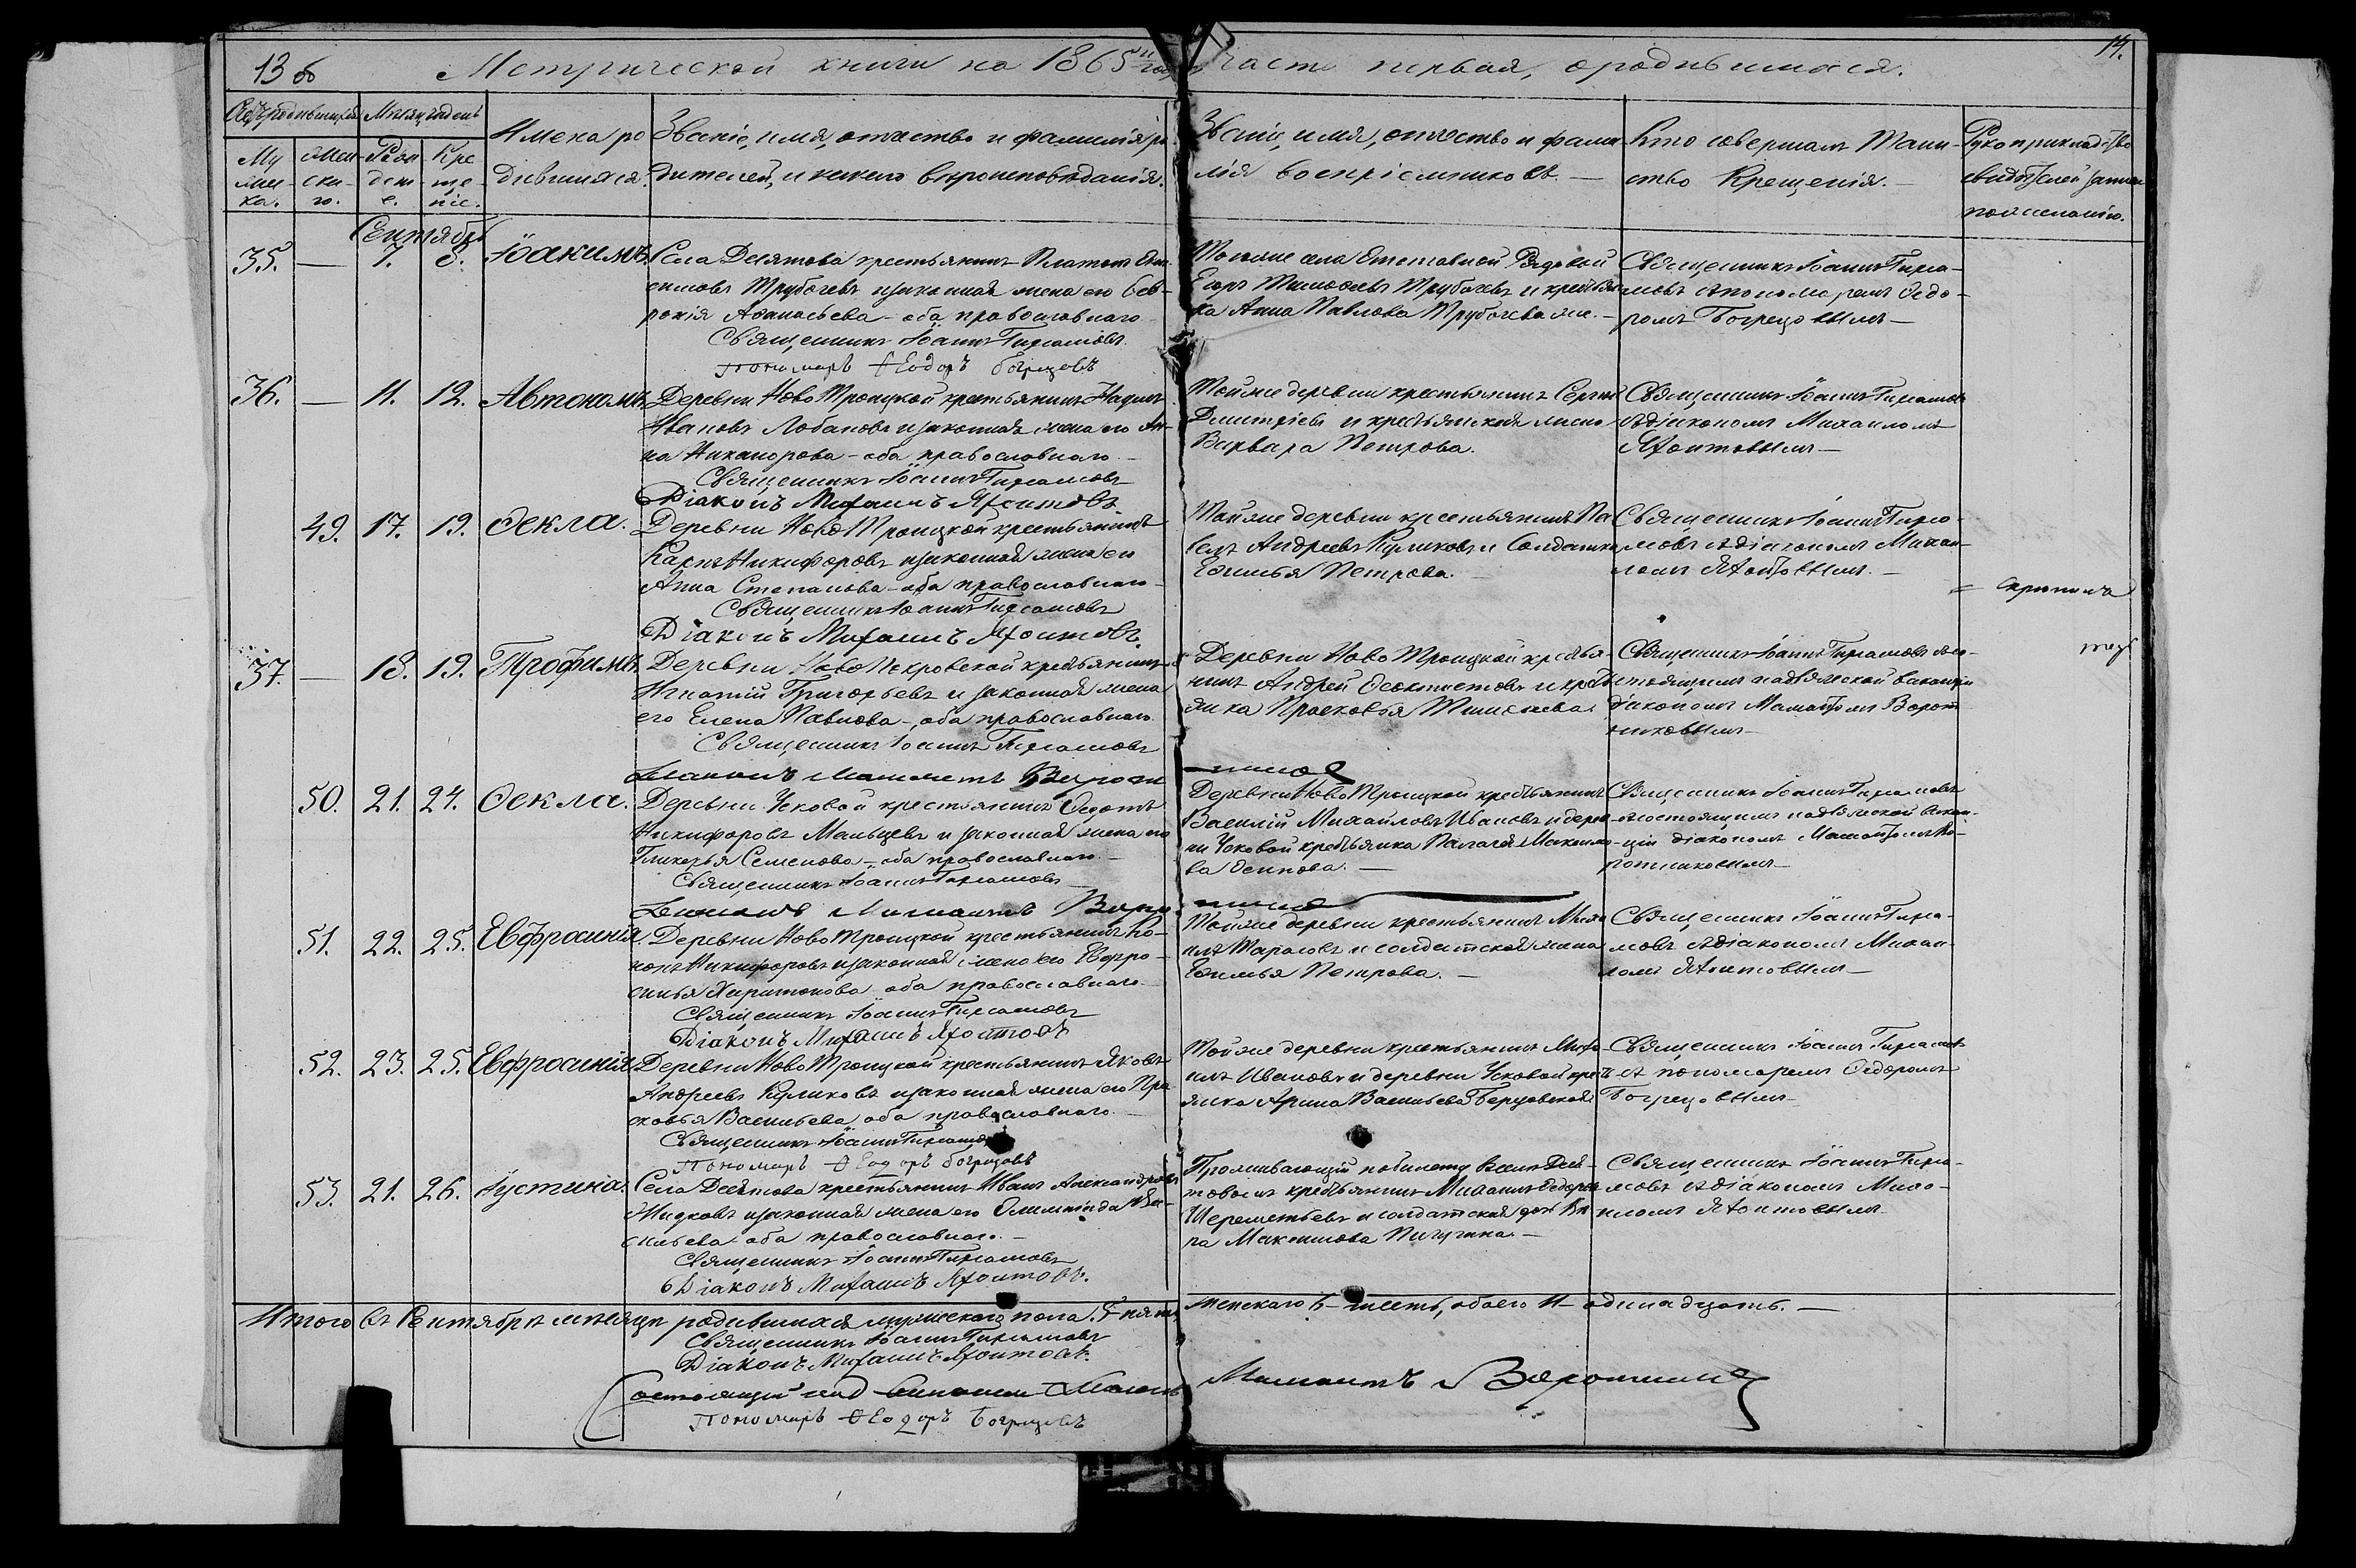 13 об
Метрической книги на 1865й годъ
часть первая, о родившихся.
14.
Счетъ родившихся
Мѣсяцъ и день
Имена ро
дившихся.
Званіе, имя, отчество и фамилія ро
дителей, и какого вѣроисповѣданія.
Званіе, имя, отчество и фами
лія воспріемниковъ. —
Кто совершалъ Таин-
ство Крещенія. —
Рукоприкладство
свидѣтелей записи
по желанію.
Му
жес-
ка.
Жен-
ска-
го.
Рож
дені-
е.
Кре
ще-
ніе.
Сентябрь
35. — 7. 8. Іоакимъ.
Села Десятова крестьянинъ Платонъ
симовъ Трубачевъ и законная жена его Фев-
ронія Аѳанасьева — оба православнаго
Священникъ Іоаннъ Гирсамовъ
Пономарь Ѳеодоръ Богрецовъ
Тогоже села Отставной Рядовой
Егоръ Тимоѳеевъ Трубачевъ и крестьян
ка Анна Павлова Трубачева же. —
Священникъ Іоаннъ Гирса-
мовъ съ пономаремъ Ѳедо-
ромъ Богрецовымъ —
36. — 11. 12. Автономъ.
Деревни Ново Троицкой крестьянинъ
Ивановъ Лобановъ и законная жена его Ан-
на Никанорова — оба православнаго. —
Священникъ Іоаннъ Гирсамовъ
Діаконъ Михаилъ Яхонтовъ
Тойже деревни крестьянинъ Сергѣй
Дмитріевъ и крестьянская жена
Варвара Петрова.
Священникъ Іоаннъ Гирсамовъ
съ діакономъ Михаиломъ
Яхонтовымъ —
49. 17. 19. Ѳекла.
Деревни Ново Троицкой крестьянинъ
Карпъ Никифоровъ и законная жена его
Анна Степанова — оба православнаго —
Священникъ Іоаннъ Гирсамовъ
Діаконъ Михаилъ Яхонтовъ.
Тойже деревни крестьянинъ Па
велъ Андреевъ Куликовъ и Солдатка
Евѳимья Петрова. —
Священникъ Іоаннъ Гирса-
мовъ съ діакономъ Михаи-
ломъ Яхонтовымъ. —
37. — 18. 19. Трофимъ.
Деревни Ново Покровской крестьянинъ
Игнатій Григорьевъ и законная жена
его Елена Павлова — оба православнаго.
Священникъ Іоаннъ Гирсамовъ
Діаконъ Мамантъ Ворот
никовъ
Деревни Ново Троицкой крестья-
нинъ Андрей Ѳеоктистовъ и кресть
янка Прасковья Тимоѳеева.
Священникъ Іоаннъ Гирсамовъ съ со-
стоящимъ на дьяческой ваканціи
діакономъ Мамантомъ Ворот
никовымъ —
50. 21. 24. Ѳекла.
Деревни Усковой крестьянинъ
Никифоровъ Мальцевъ и законная жена его
Гликерья Семенова — оба православнаго. —
Священникъ Іоаннъ Гирсамовъ
Діаконъ Мамантъ Ворот
никовъ
Деревни Ново Троицкой крестьянинъ
Василій Михайловъ Ивановъ и дерев-
ни Усковой крестьянка Палагея Максимо-
ва Осипова. —
Священникъ Іоаннъ Гирсамовъ
съ состоящимъ на дьяческой вакан-
ціи діакономъ Мамантомъ Во-
ротниковымъ —
51. 22. 25. Евфросинія.
Деревни Ново Троицкой крестьянинъ Ко-
нонъ Никифоровъ и законная жена его Евфро-
синья Харитонова оба православнаго —
Священникъ Іоаннъ Гирсамовъ
Діаконъ Михаилъ Яхонтовъ
Тойже деревни крестьянинъ Миха
илъ Тарасовъ и солдатская жена
Евѳимья Петрова. —
Священникъ Іоаннъ Гирса-
мовъ съ діакономъ Михаи-
ломъ Яхонтовымъ —
52. 23. 25. Евфросинія
Деревни Ново Троицкой крестьянинъ Яковъ
Андреевъ Куликовъ и законная жена его Пра
сковья Васильева оба православнаго. —
Священникъ Іоаннъ Гирсамовъ
Пономарь Ѳеодоръ Богрецовъ
Тойже деревни крестьянинъ Миха-
илъ Ивановъ и деревни Усковой кресть
янка Арина Васильева
Священникъ Іоаннъ Гирсамовъ
съ пономаремъ Ѳедоромъ
Богрецовымъ —
53. 21. 26. Іустина.
Села Десятова крестьянинъ Иванъ Александровъ
Жидковъ и законная жена его Олимпіада Ва-
сильева оба православнаго. —
Священникъ Іоаннъ Гирсамовъ
Діаконъ Михаилъ Яхонтовъ.
Проживающій по билету въ селѣ Деся-
товомъ крестьянинъ Михаилъ Ѳедоровъ
Шереметьевъ и солдатская дочь
Максимова Пичугина. —
Священникъ Іоаннъ Гирса-
мовъ съ діакономъ Миха-
иломъ Яхонтовымъ.
Итого въ Сентябрѣ мѣсяцѣ родившихся мужескаго пола 5 пять
женскаго 6 — шесть, обоего 11 — одинадцать. —
Священникъ Іоаннъ Гирсамовъ
Діаконъ Михаилъ Яхонтовъ.
Состоящій
Мамантъ Воротниковъ
Пономарь Ѳеодоръ Богрецовъ